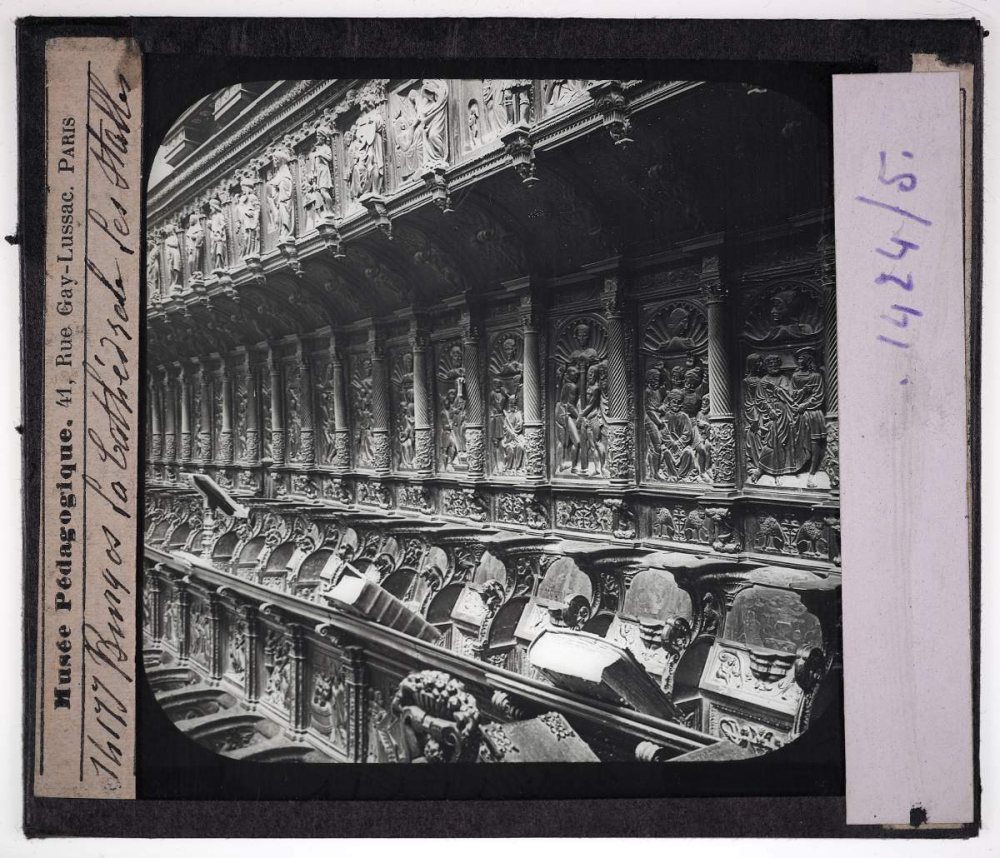 Musée Pédagogique. 41, Rue Gay-Lussac. PARIS
Burgos La Cathédrale Les stalles
1424/5.